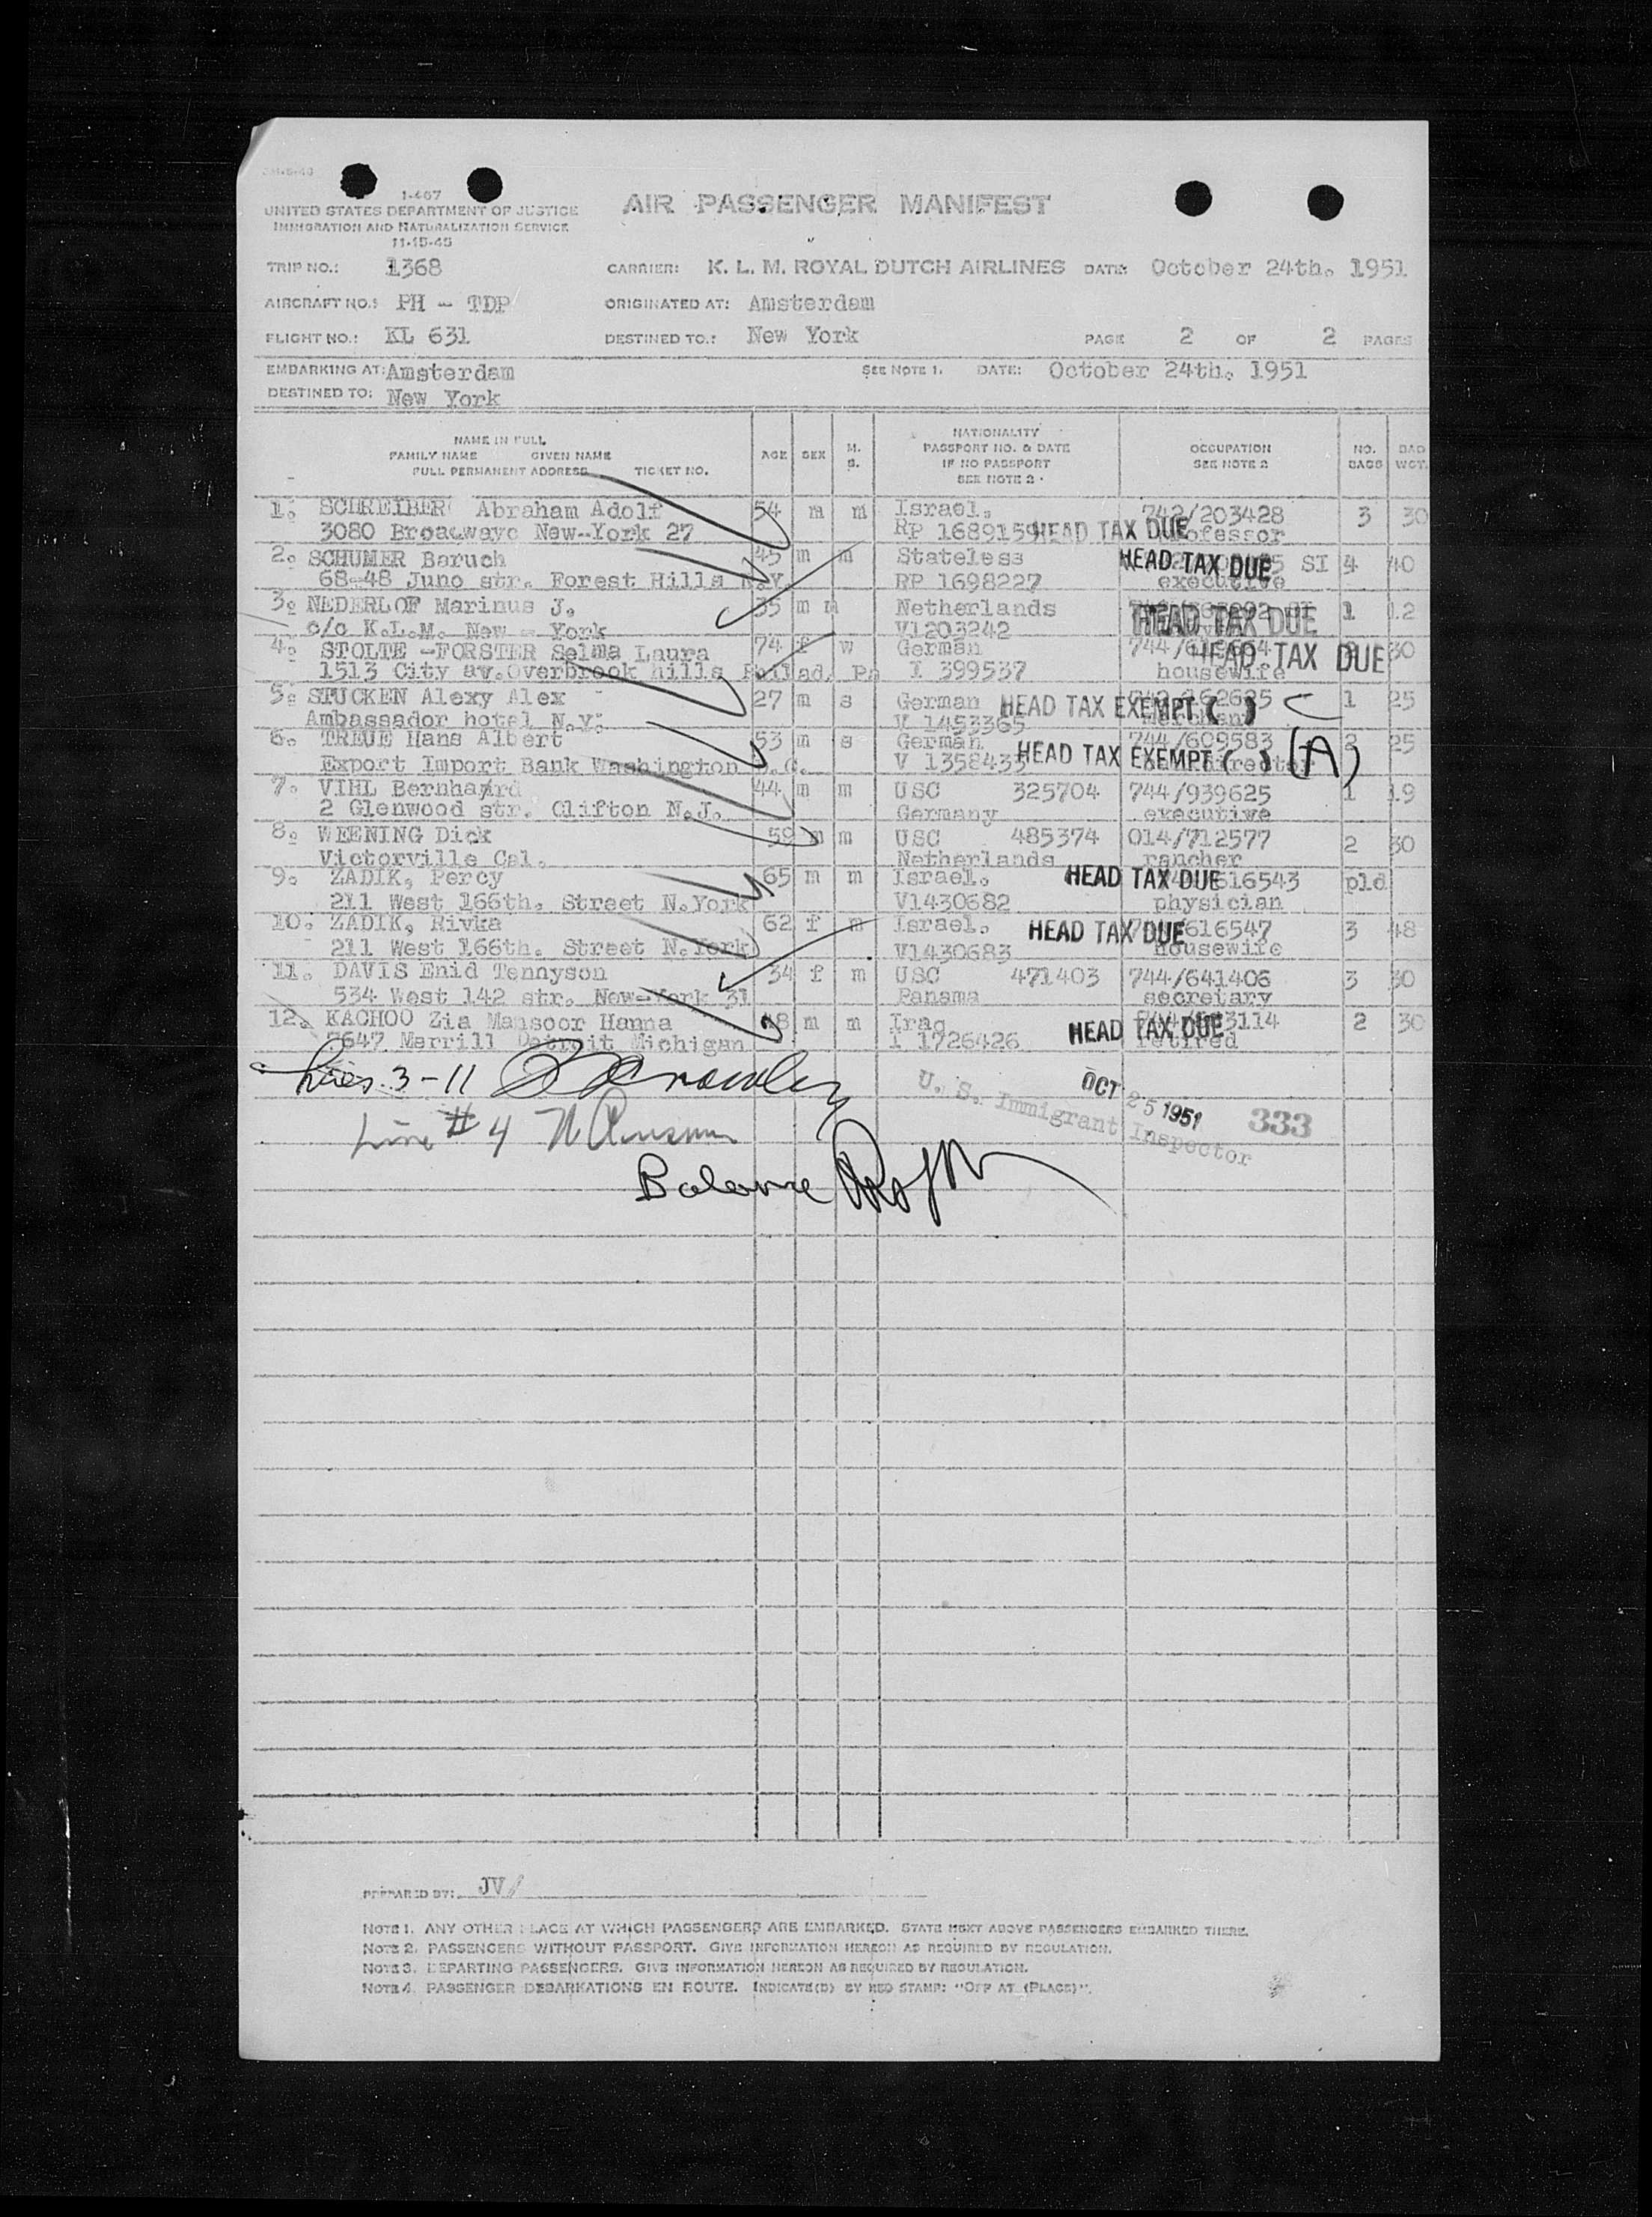 I-467
UNITED STATES DEPARTMENT OF JUSTICE
IMMIGRATION AND NATURALIZATION SERVICE
11-15-45
AIR PASSENGER MANIFEST
TRIP NO.: 1368 CARRIER: K. L. M. ROYAL DUTCH AIRLINES DATE: October 24th. 1951
AIRCRAFT NO.: PH - TDP ORIGINATED AT: Amsterdam
FLIGHT NO.: KL 631 DESTINED TO.: New York PAGE 2 OF 2 PAGES
EMBARKING AT: Amsterdam SEE NOTE 1. DATE: October 24th. 1951
DESTINED TO: New York
NAME IN FULL
FAMILY NAME GIVEN NAME
FULL PERMANENT ADDRESS TICKET NO.
AGE SEX M. S.
NATIONALITY
PASSPORT NO. & DATE
IF NO PASSPORT
SEE NOTE 2
OCCUPATION
SEE NOTE 2
NO. BAGS BAG WGT.
1. SCHREIBER Abraham Adolf 54 m m Israel. 742/203428 3 30
3080 Broadwayc New-York 27 RP 1689159 HEAD TAX DUE
2. SCHUMER Baruch 45 m m Stateless HEAD TAX DUE SI 4 40
68-48 Juno str. Forest Hills N.Y. RP 1698227 executive
3. NEDERLOF Marinus J. 35 m m Netherlands HEAD TAX DUE 1 12
c/o K.L.M. New - York V1203242
4. STOLTE -FORSTER Selma Laura 74 f w German HEAD TAX DUE 30
1513 City av.Overbrook hills Philad. Pa I 399537 housewife
5. STUCKEN Alexy Alex 27 m s German HEAD TAX EXEMPT ( ) 1 25
Ambassador hotel N.Y. V 1453365
6. TREUE Hans Albert 53 m s German 744/609583 2 25
Export Import Bank Washington D.C. V 1358435 HEAD TAX EXEMPT ( ) (A)
7. VIHL Bernhard 44 m m USC 325704 744/939625 1 19
2 Glenwood str. Clifton N.J. Germany executive
8. WEENING Dick 59 m m USC 485374 014/712577 2 30
Victorville Cal. Netherlands rancher
9. ZADIK, Percy 65 m m Israel. HEAD TAX DUE 616543 pld
211 West 166th. Street N.York V1430682 physician
10. ZADIK, Rivka 62 f m Israel. HEAD TAX DUE 616547 3 48
211 West 166th. Street N.York V1430683 housewife
11. DAVIS Enid Tennyson 34 f m USC 471403 744/641406 3 30
534 West 142 str. New-York 31 Panama secretary
12. KACHOO Zia Mansoor Hanna 48 m m Iraq HEAD TAX DUE 2 30
7647 Merrill Detroit Michigan I 1726426 retired
Lines 3-11
OCT 25 1951 333
U. S. Immigrant Inspector
Line # 4
Balance
PREPARED BY: JV/
NOTE 1. ANY OTHER PLACE AT WHICH PASSENGERS ARE EMBARKED. STATE NEXT ABOVE PASSENGERS EMBARKED THERE.
NOTE 2. PASSENGERS WITHOUT PASSPORT. GIVE INFORMATION HEREON AS REQUIRED BY REGULATION.
NOTE 3. DEPARTING PASSENGERS. GIVE INFORMATION HEREON AS REQUIRED BY REGULATION.
NOTE 4. PASSENGER DEBARKATIONS EN ROUTE. INDICATE(D) BY RED STAMP: "OFF AT (PLACE)".